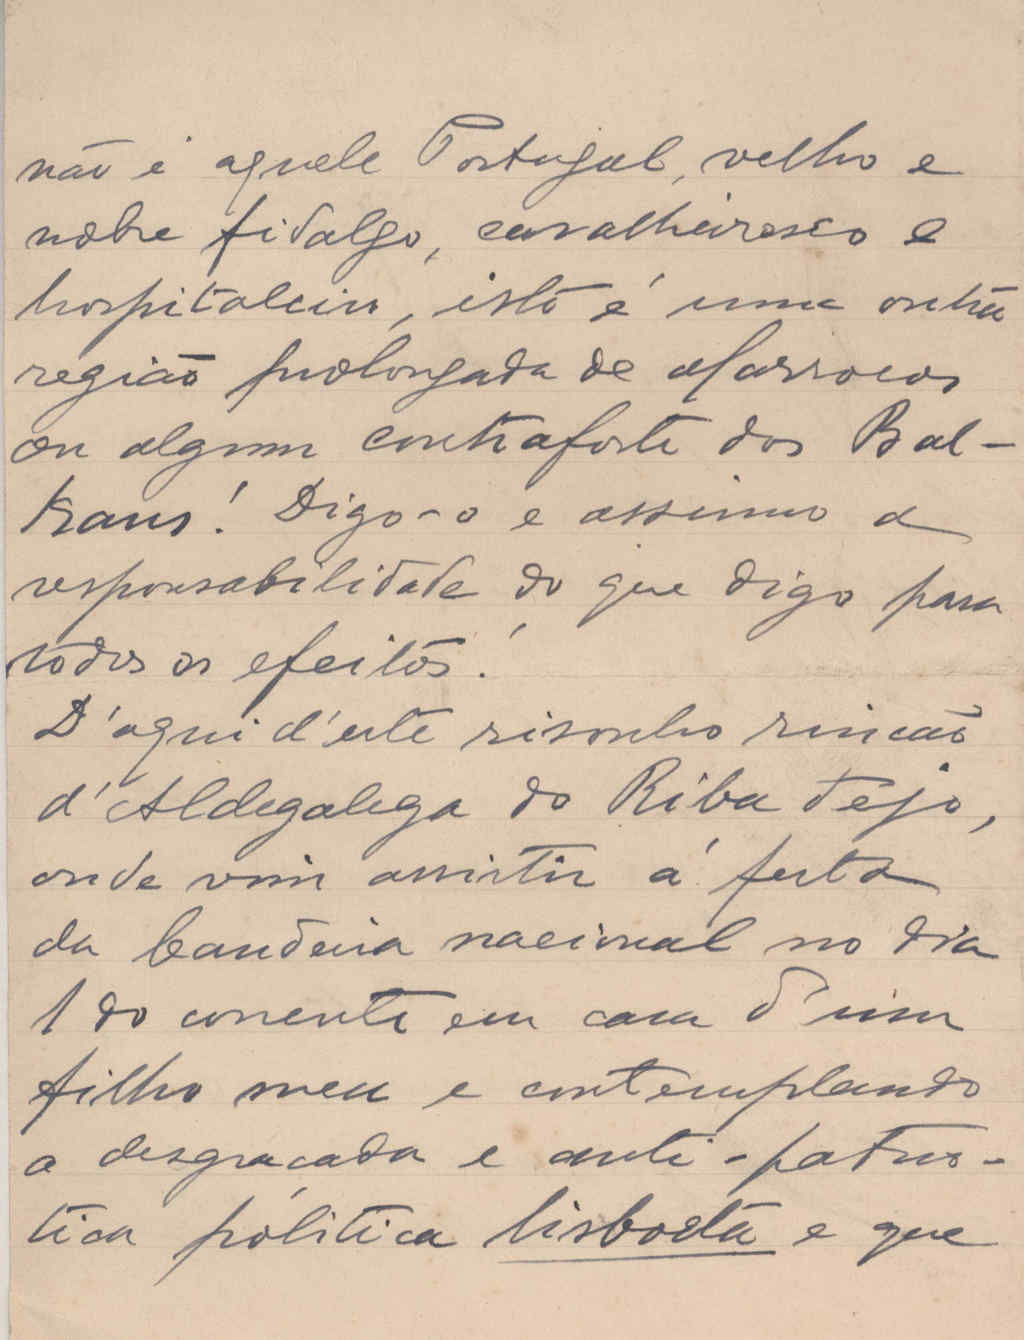 não é aquele Portugal, velho e
nobre fidalgo, cavalheiresco e
hospitaleiro, isto é uma outra
região prolongada de Marrocos
ou algum contraforte dos Bal-
kans! Digo-o e assumo a
responsabilidade do que digo para
todos os efeitos!
D'aqui d'este risonho rincão
d'Aldegalega do Riba Tejo,
onde vim assistir á festa
da bandeira nacional no dia
1 do corrente em casa d'um
filho meu e contemplando
a desgraçada e anti-patrio-
tica politica lisboeta e que